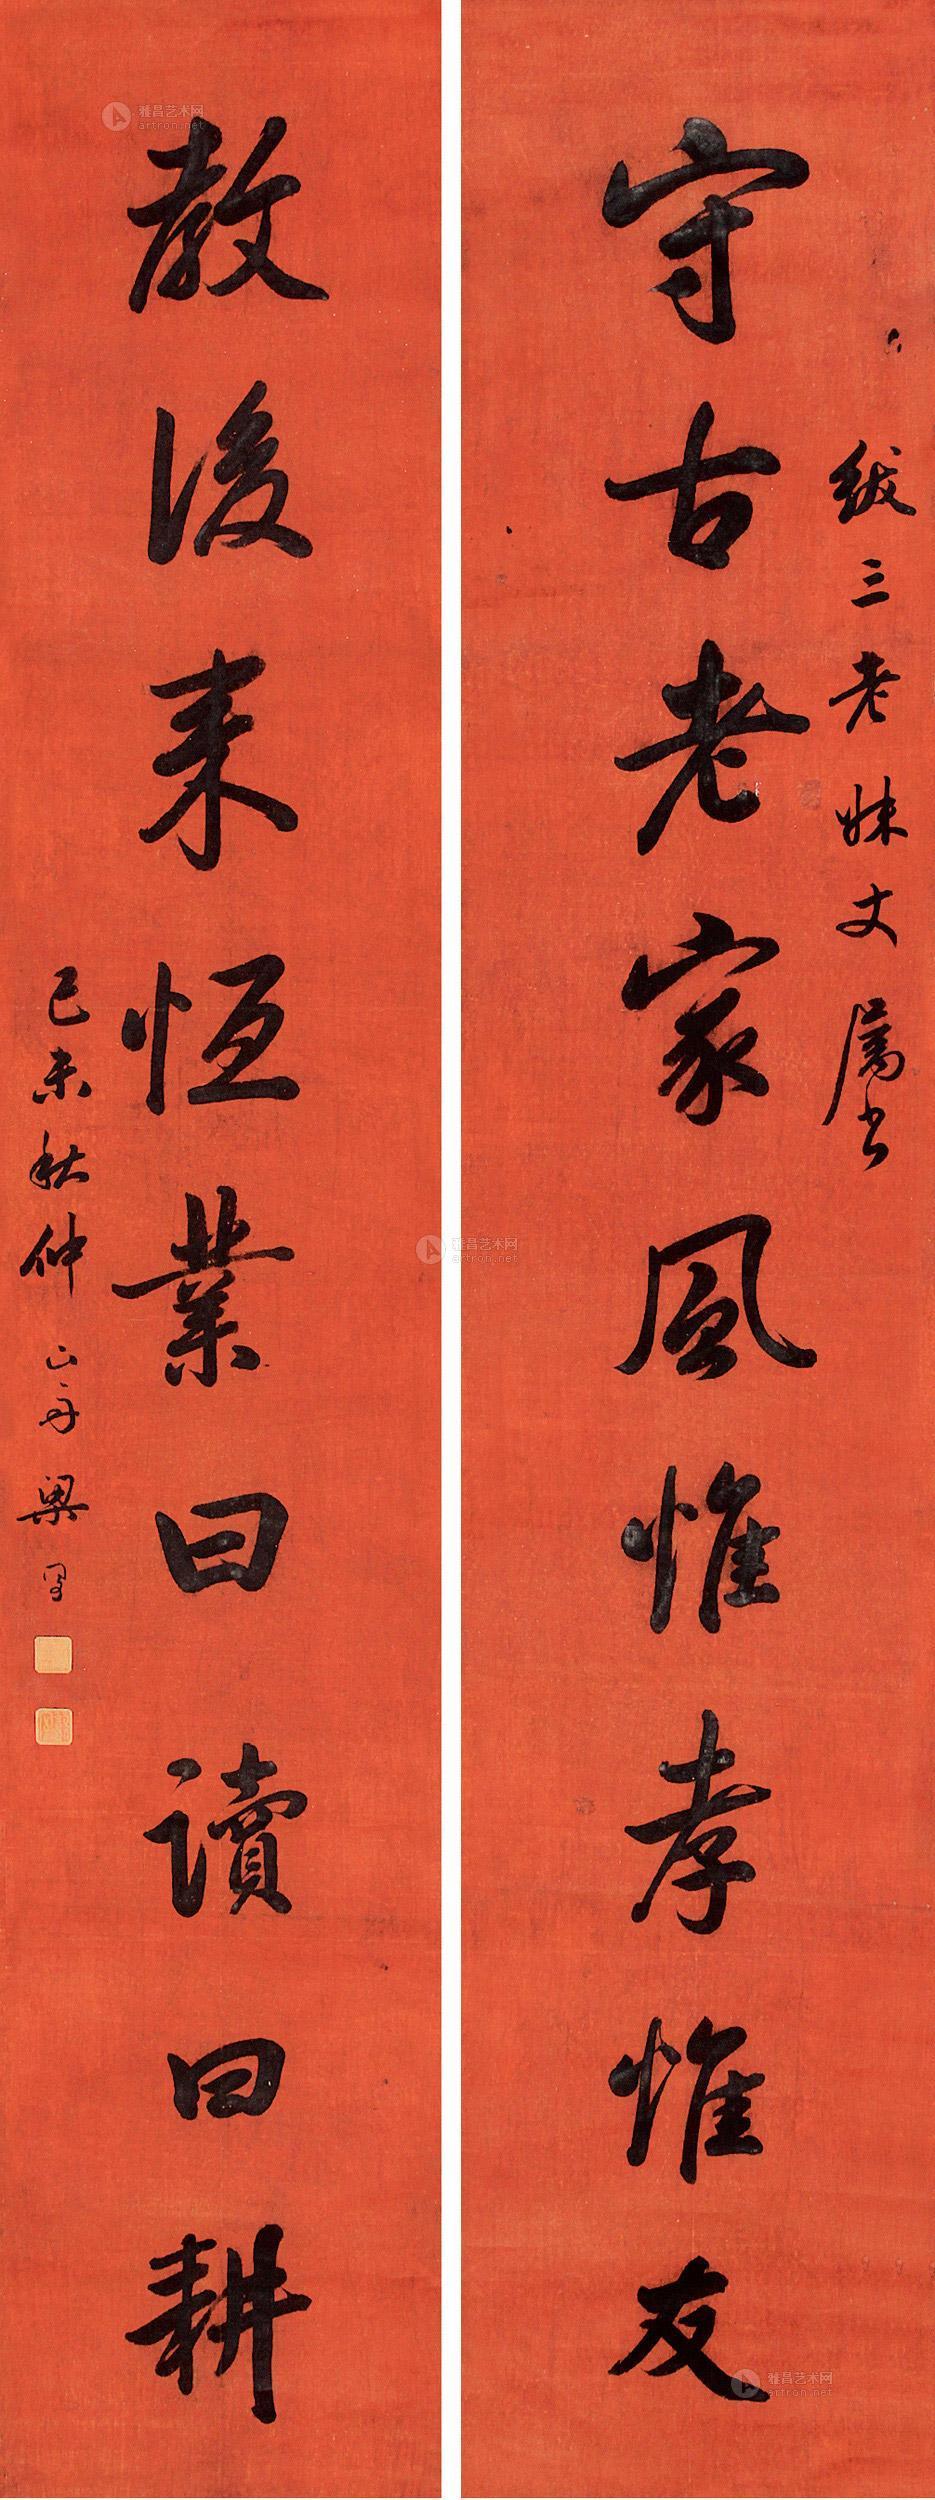 紱三老妹丈属书
守古老家风惟孝惟友
教後来恒業曰讀曰耕
己未秋仲山舟梁同书
雅昌艺术网
artron.net
雅昌艺术网
artron.net
雅昌艺术网
artron.net